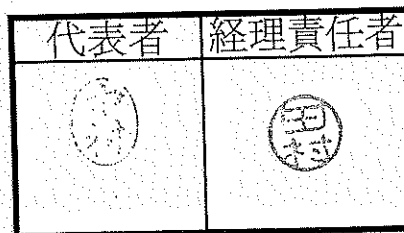 代表者 経理責任者
田村